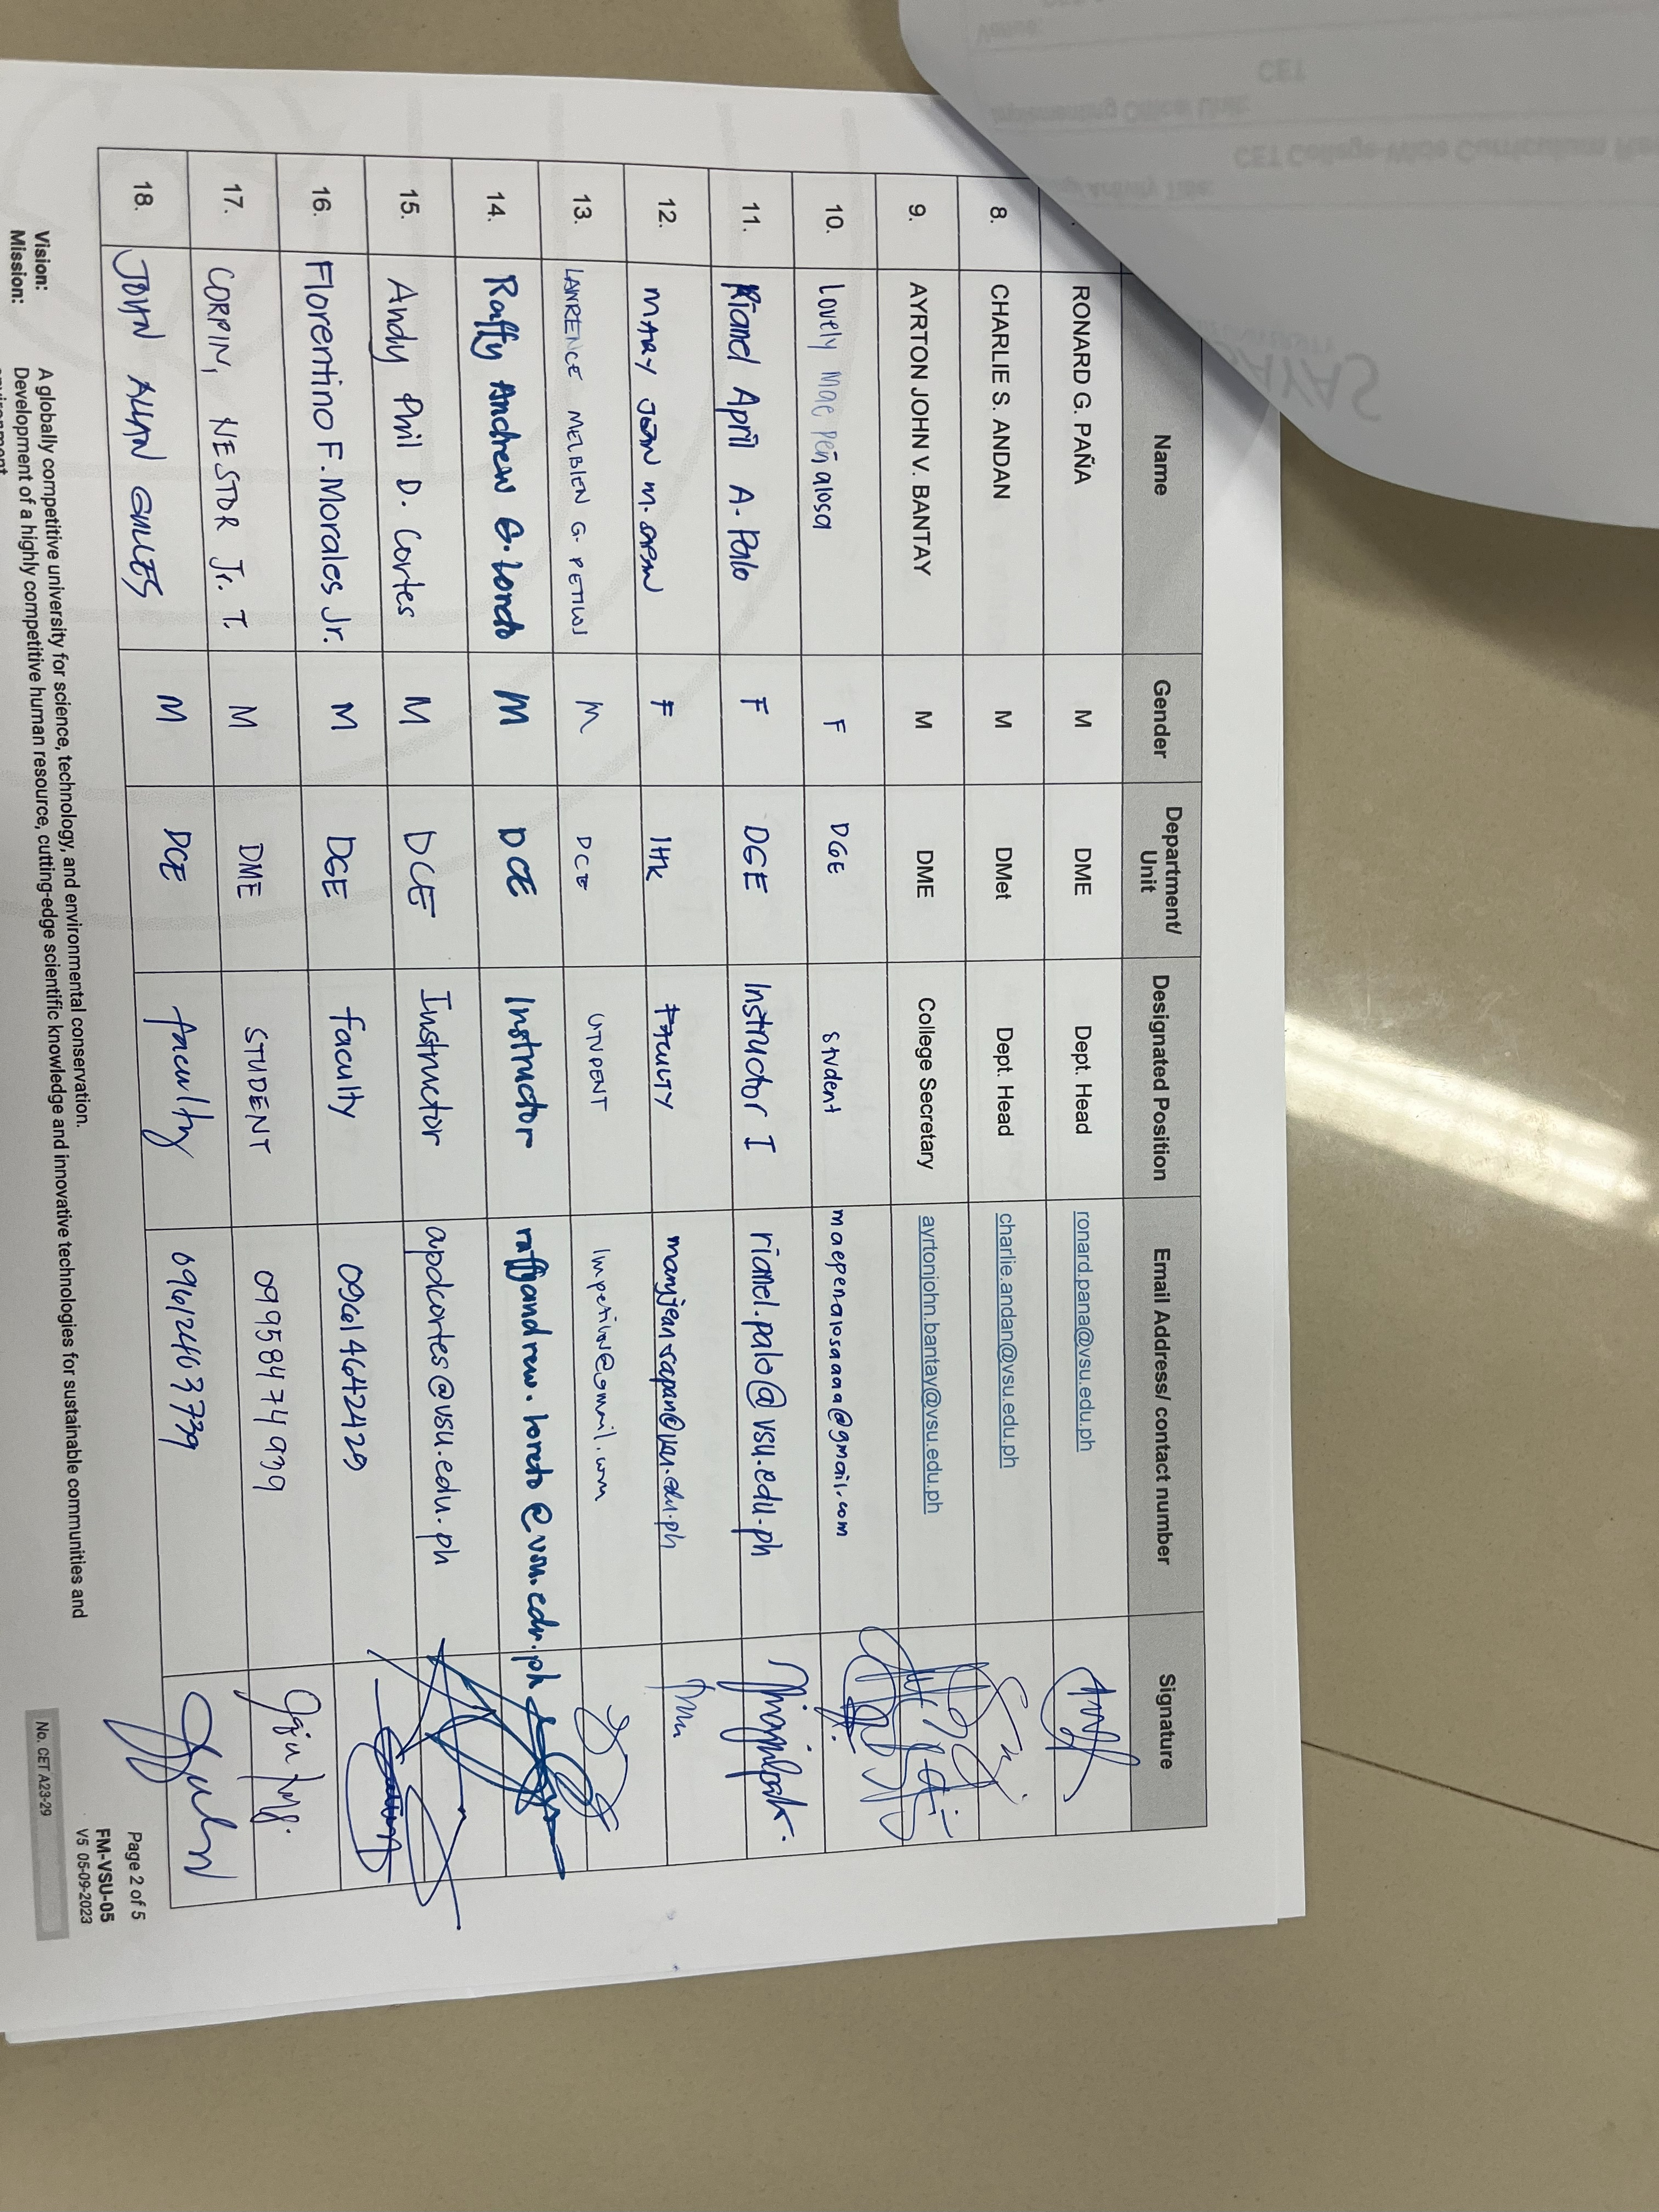 Name Gender Department/ Unit Designated Position Email Address/ contact number Signature
RONARD G. PAÑA M DME Dept. Head ronard.pana@vsu.edu.ph
8. CHARLIE S. ANDAN M DMet Dept. Head charlie.andan@vsu.edu.ph
9. AYRTON JOHN V. BANTAY M DME College Secretary ayrtonjohn.bantay@vsu.edu.ph
10. Lovely Mae Peñalosa F DGE Student maepenalosaaaa@gmail.com
11. Riamel April A. Palo F DGE Instructor I riamel.palo@vsu.edu.ph
12. MARY JEAN M. SAPAN F IHK FACULTY maryjean.sapan@vsu.edu.ph
13. LAWRENCE MELBIEN G. M DCE STUDENT
14. Raffy Andrew G. Loreto M DCE Instructor raffyandrew.loreto@vsu.edu.ph
15. Andy Phil D. Cortes M DCE Instructor apdcortes@vsu.edu.ph
16. Florentino F. Morales Jr. M DGE faculty 09614642429
17. CORPIN, NESTOR Jr. T. M DME STUDENT 09958474939
18. JOHN ALLAN GULLES M DCE faculty 09612403739
Vision: A globally competitive university for science, technology, and environmental conservation.
Mission: Development of a highly competitive human resource, cutting-edge scientific knowledge and innovative technologies for sustainable communities and
environment
Page 2 of 5
FM-VSU-05
V5 05-09-2023
No. CET A23-29
CET College-Wide Curriculum
CET
Venue: